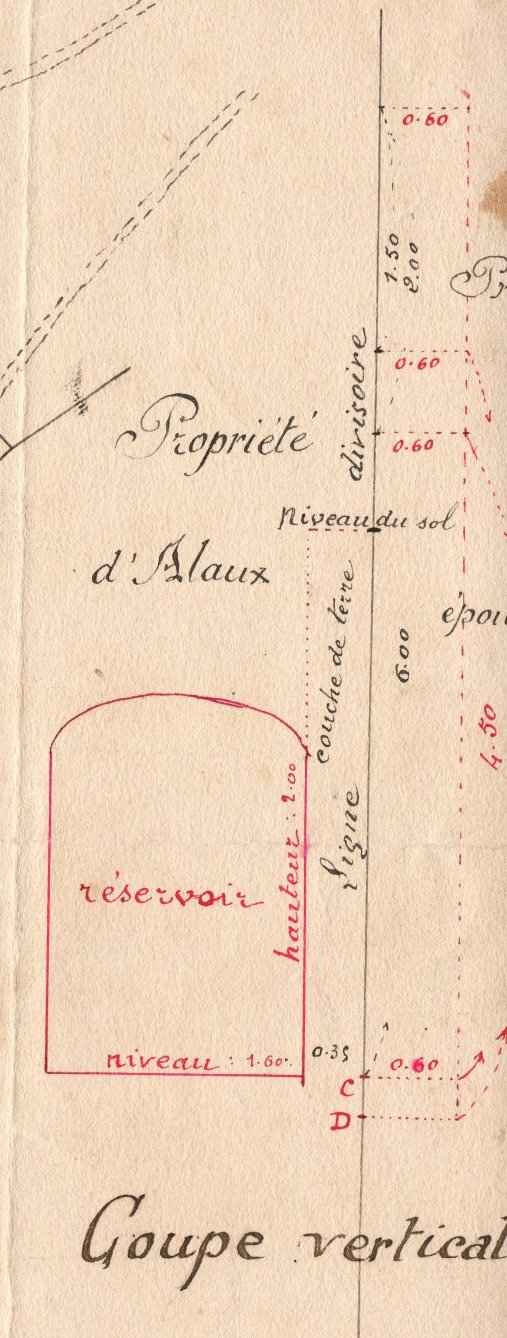 0.60
1.50
2.00
Pr
0.60
divisoire
Propriété
0.60
Niveau du sol
d'Alaux
couche de terre
épou
6.00
4.50
hauteur : 2.00
Ligne
réservoir
niveau : 1.60.
0.35
0.60
C
D
Coupe vertical